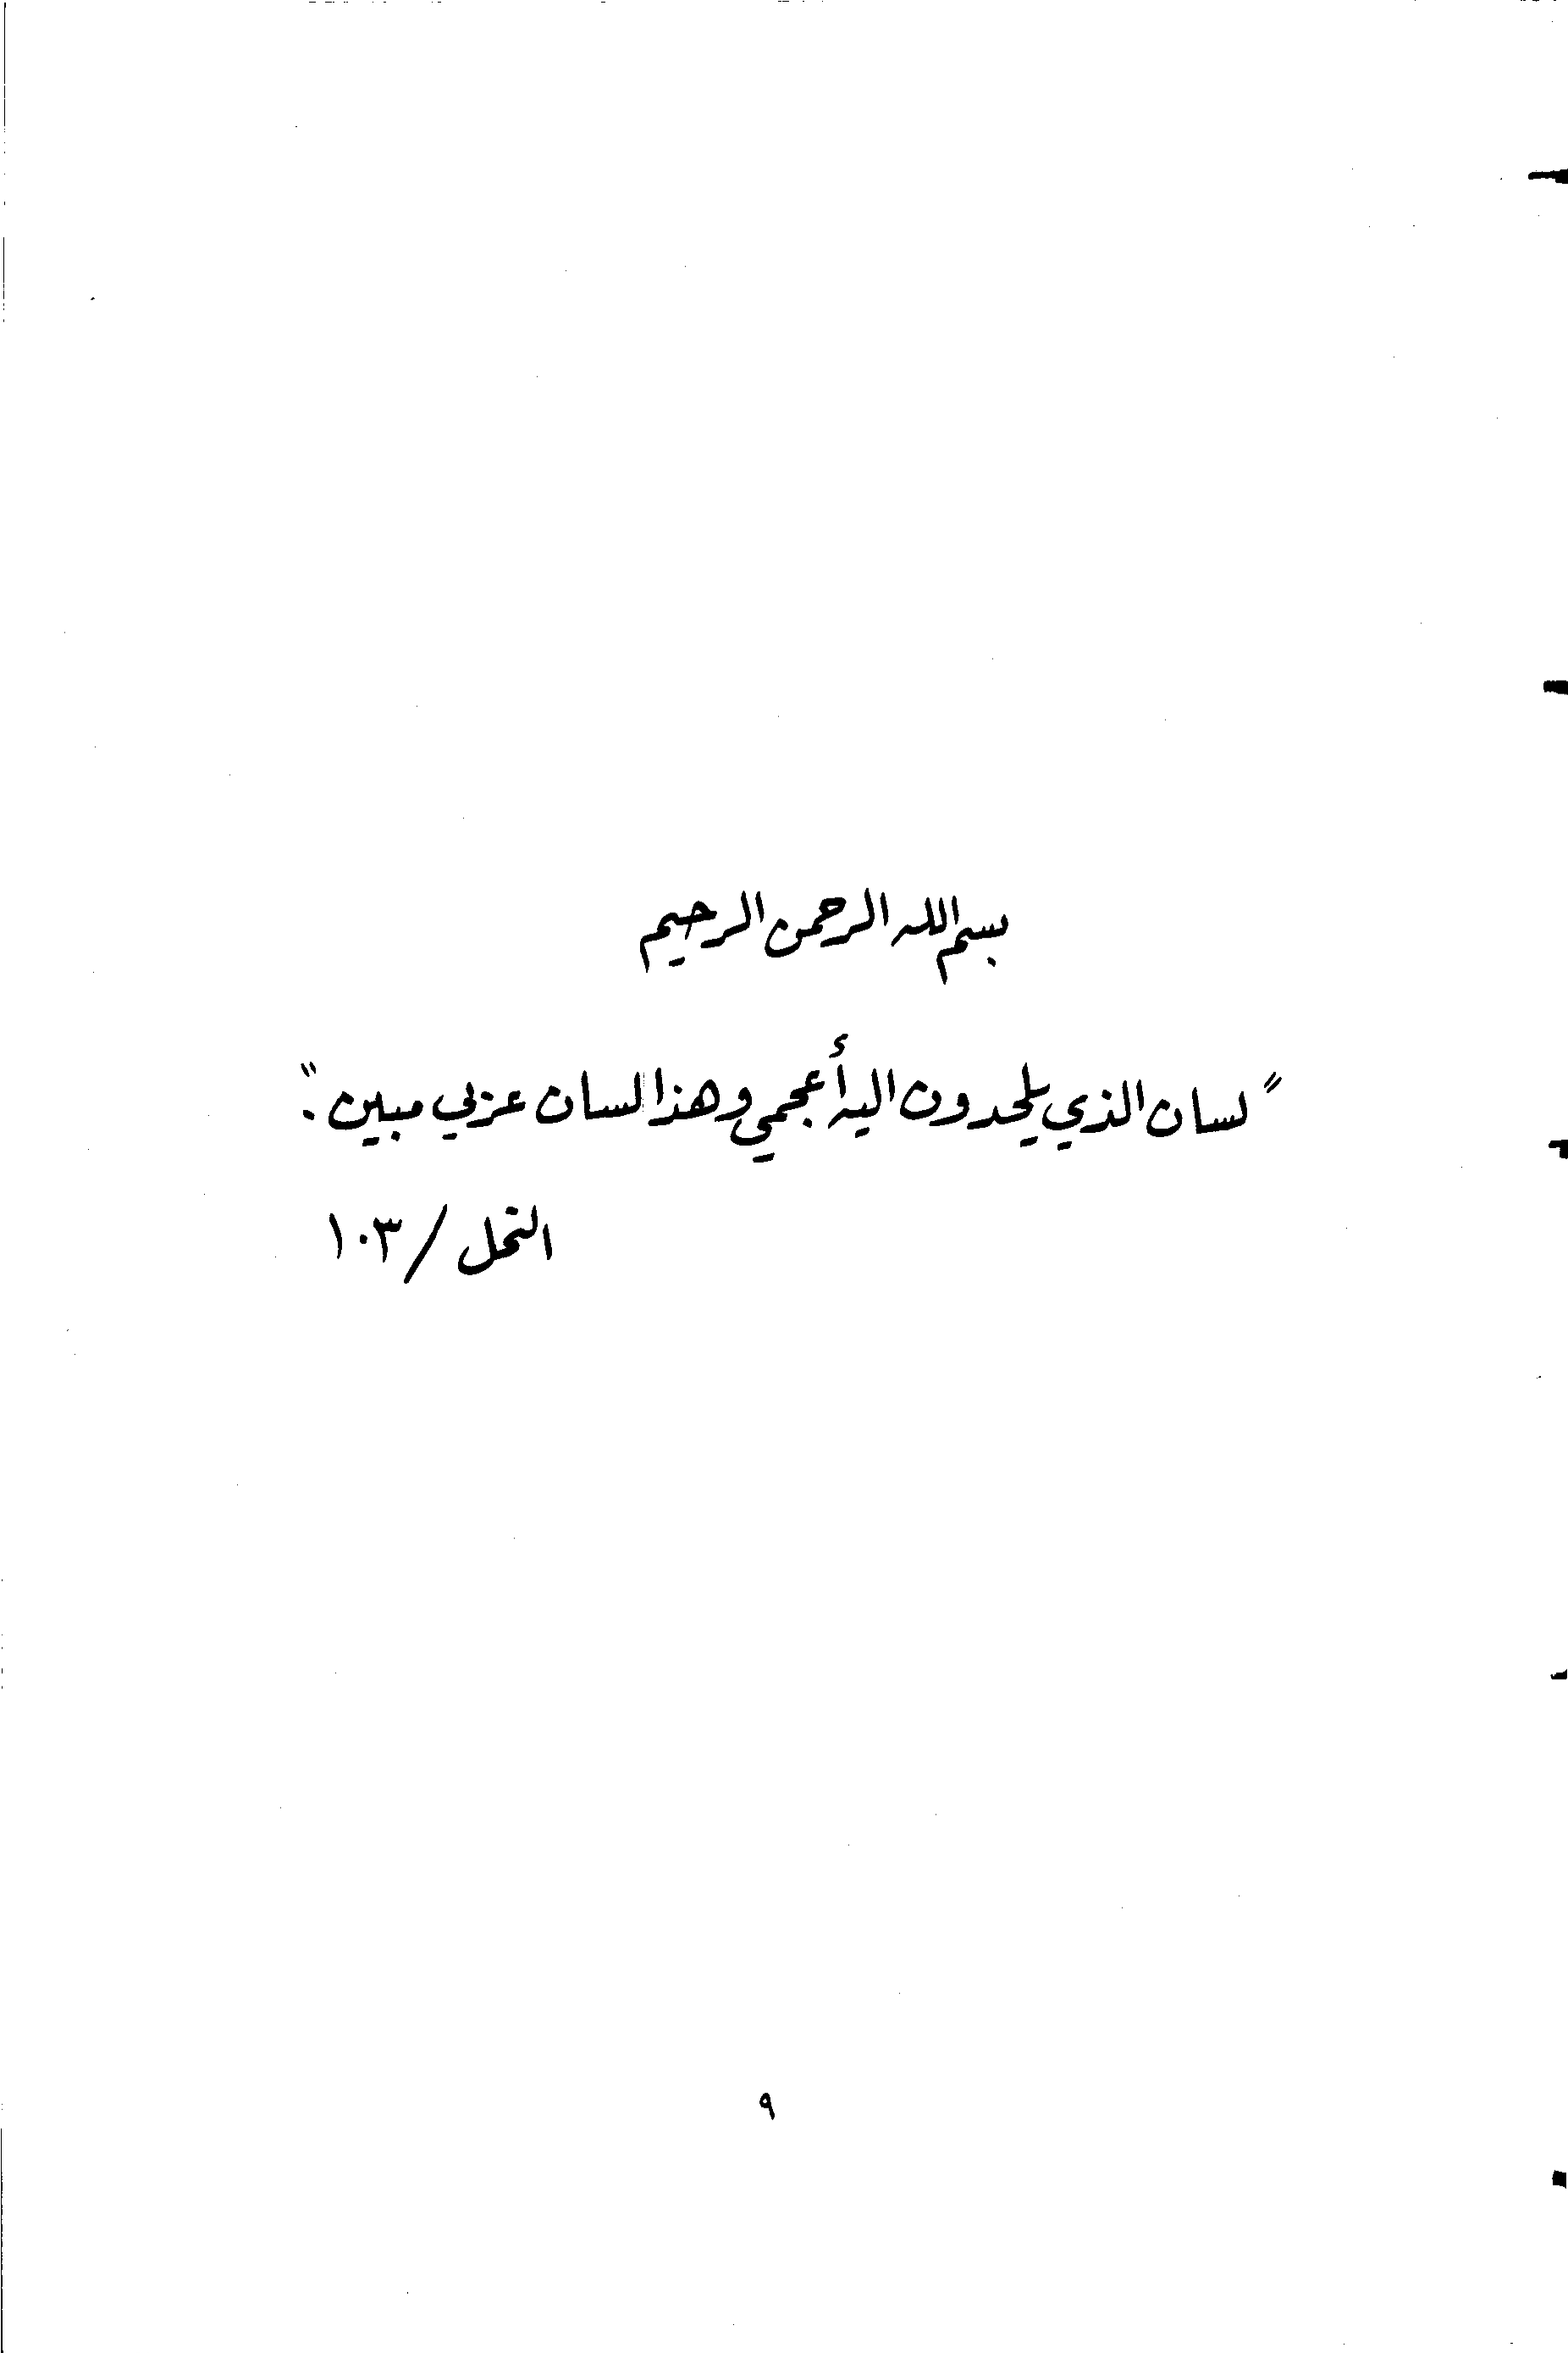 بسم الله الرحمن الرحيم
"لسان الذي يلحدون اليه أعجمي وهذا لسان عربي مبين."
النحل / ١٠٣
٩